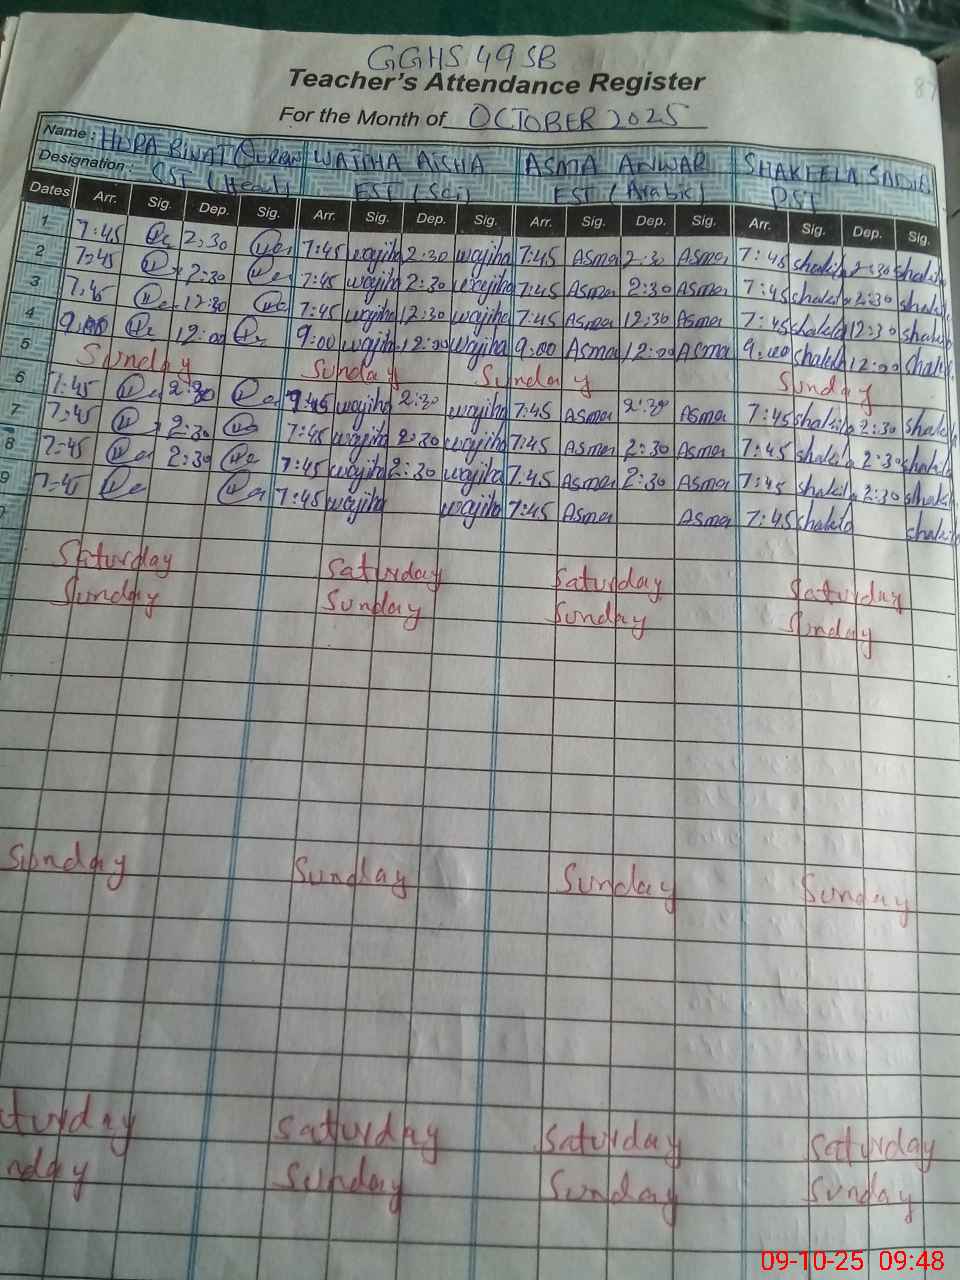 GGHS 49 SB
Teacher's Attendance Register
For the Month of OCTOBER 2025
Name: WAJIHA AISHA ASMA ANWAR SHAKEELA SADIQ
Designation: SST (Head) EST (Sci) EST (Arabic) PST
Dates Arr. Sig. Dep. Sig. Arr. Sig. Dep. Sig. Arr. Sig. Dep. Sig. Arr. Sig. Dep. Sig.
1 7:45 2:30 7:45 wajiha 2:30 wajiha 7:45 Asma 2:30 Asma 7:45 shakila 2:30 shakila
2 7:45 2:30 7:45 wajiha 2:30 wajiha 7:45 Asma 2:30 Asma 7:45 shakila 2:30 shakila
3 7:45 12:30 7:45 wajiha 12:30 wajiha 7:45 Asma 12:30 Asma 7:45 shakila 12:30 shakila
4 9:00 12:00 9:00 wajiha 12:00 wajiha 9:00 Asma 12:00 Asma 9:00 shakila 12:00 shakila
5 Sunday Sunday Sunday Sunday
6 7:45 2:30 7:45 wajiha 2:30 wajiha 7:45 Asma 2:30 Asma 7:45 shakila 2:30 shakila
7 7:45 2:30 7:45 wajiha 2:30 wajiha 7:45 Asma 2:30 Asma 7:45 shakila 2:30 shakila
8 7:45 2:30 7:45 wajiha 2:30 wajiha 7:45 Asma 2:30 Asma 7:45 shakila 2:30 shakila
9 7:45 7:45 wajiha wajiha 7:45 Asma Asma 7:45 shakila shakila
Saturday Saturday Saturday Saturday
Sunday Sunday Sunday Sunday
Sunday Sunday Sunday Sunday
aturday Saturday Saturday Saturday
nday Sunday Sunday Sunday
09-10-25 09:48